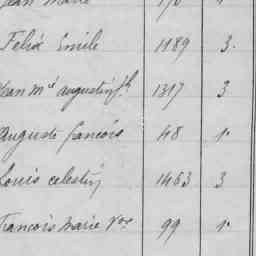 Jean Marie 170 1.
Felix Emile 1189 3.
Jean Mie augustin fs 1317 3
auguste francois 48 1.
Louis celestin 1463 3
Francois Marie Vor 99 1.